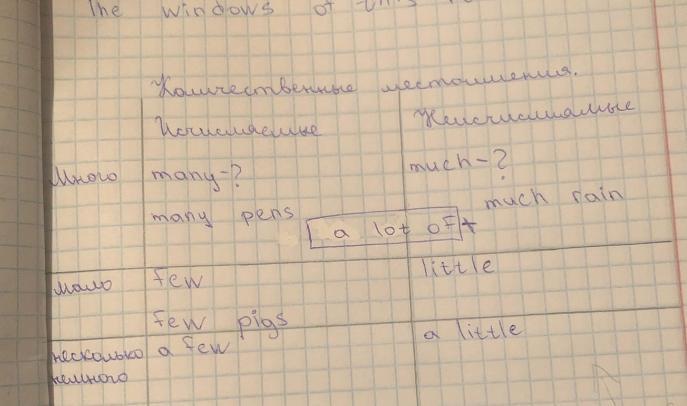 The windows of this
Количественные местоимения.
Исчисляемые Неисчисляемые
Много many-? much-?
many pens much rain
a lot of +
мало few little
few pigs
несколько a few a little
немного